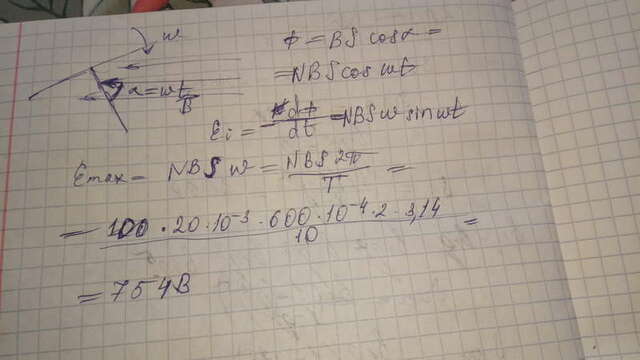 ω
α = ωt
B
Φ = BS cosα =
= NBS cos ωt
Ei = - dΦ/dt = NBSω sin ωt
Emax = NBSω = NBS 2π/T =
= 100 · 20 · 10⁻³ · 600 · 10⁻⁴ · 2 · 3,14 / 10 =
= 754В